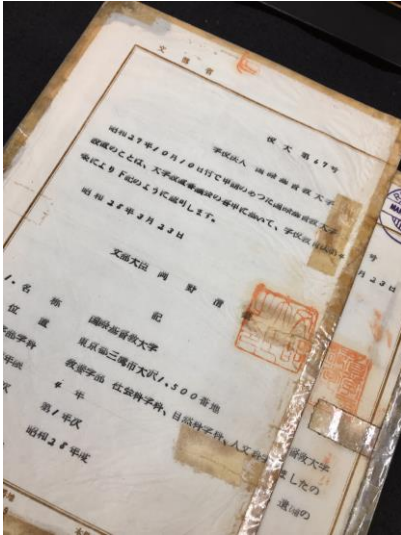 文部省
校大第67号
学校法人 国際基督教大学
昭和27年10月10日付で申請のあつた国際基督教大学
設置のことは、大学設置審議会の答申に基いて、学校教育法第4
条により下記のように認可します。
昭和28年3月23日
文部大臣 岡野清
記
1.名称 国際基督教大学
位置 東京都三鷹市大沢1,500番地
学部学科 教養学部 社会科学科、自然科学科、人文科学
4年
第1年次
昭和28年度
号
月23日
督教大学
ましたの